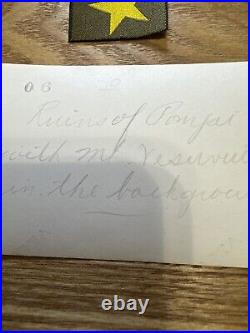 06
Ruins of Pompei
with Mt. Vesuvius
in the backgrou